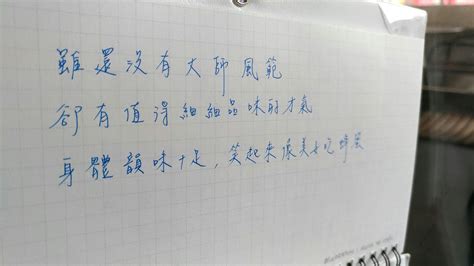 雖還沒有大師風範
卻有值得細細品味的才氣
身體韻味十足，笑起來很美